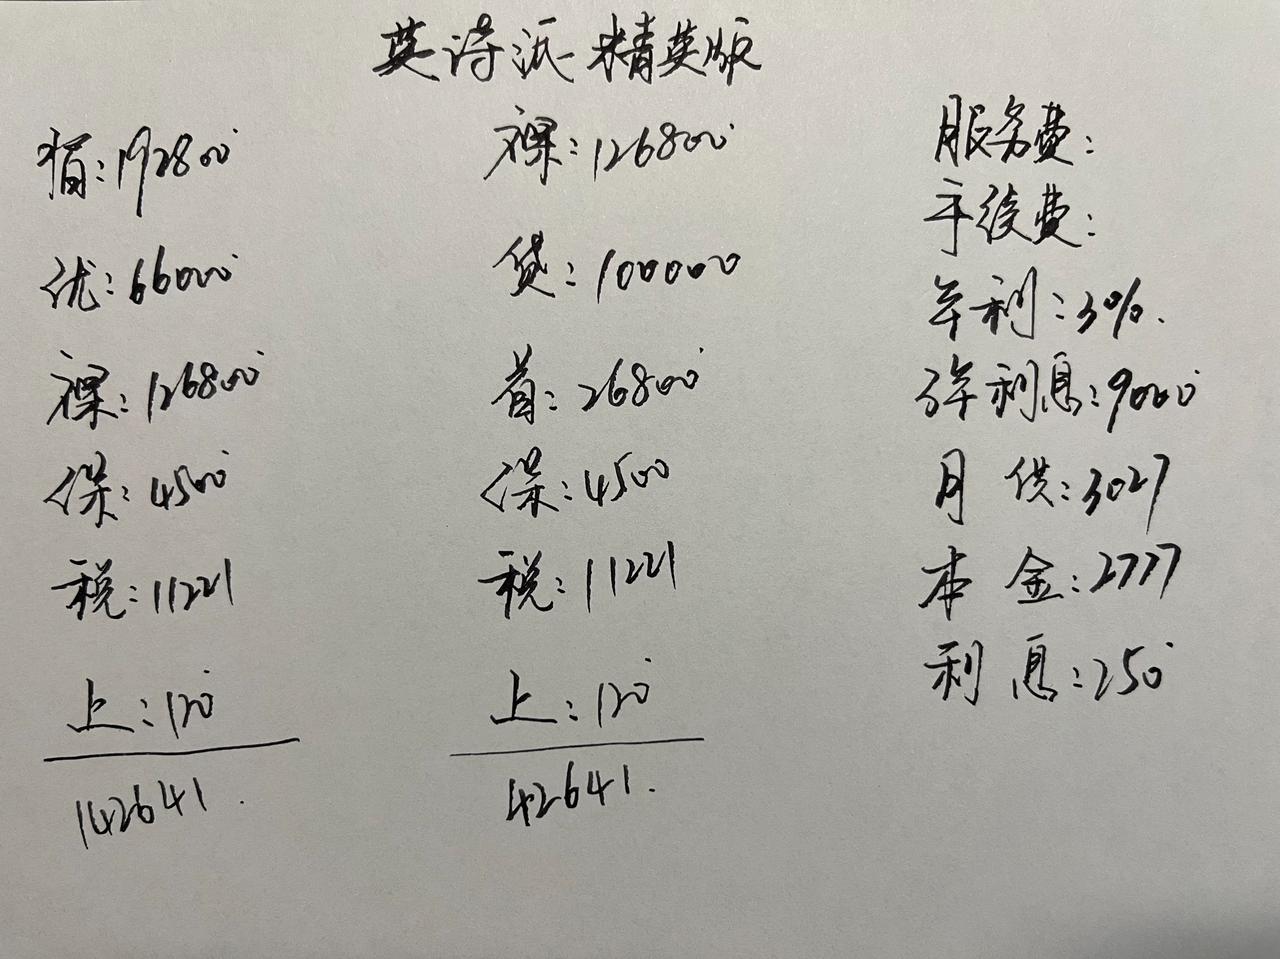 英诗派精英版
指:192800
优:66000
裸:126800
保:4500
税:11221
上:120
142641.
裸:126800
贷:100000
首:26800
保:4500
税:11221
上:120
42641.
服务费:
手续费:
年利:3%.
3年利息:9000
月供:3027
本金:2777
利息:250